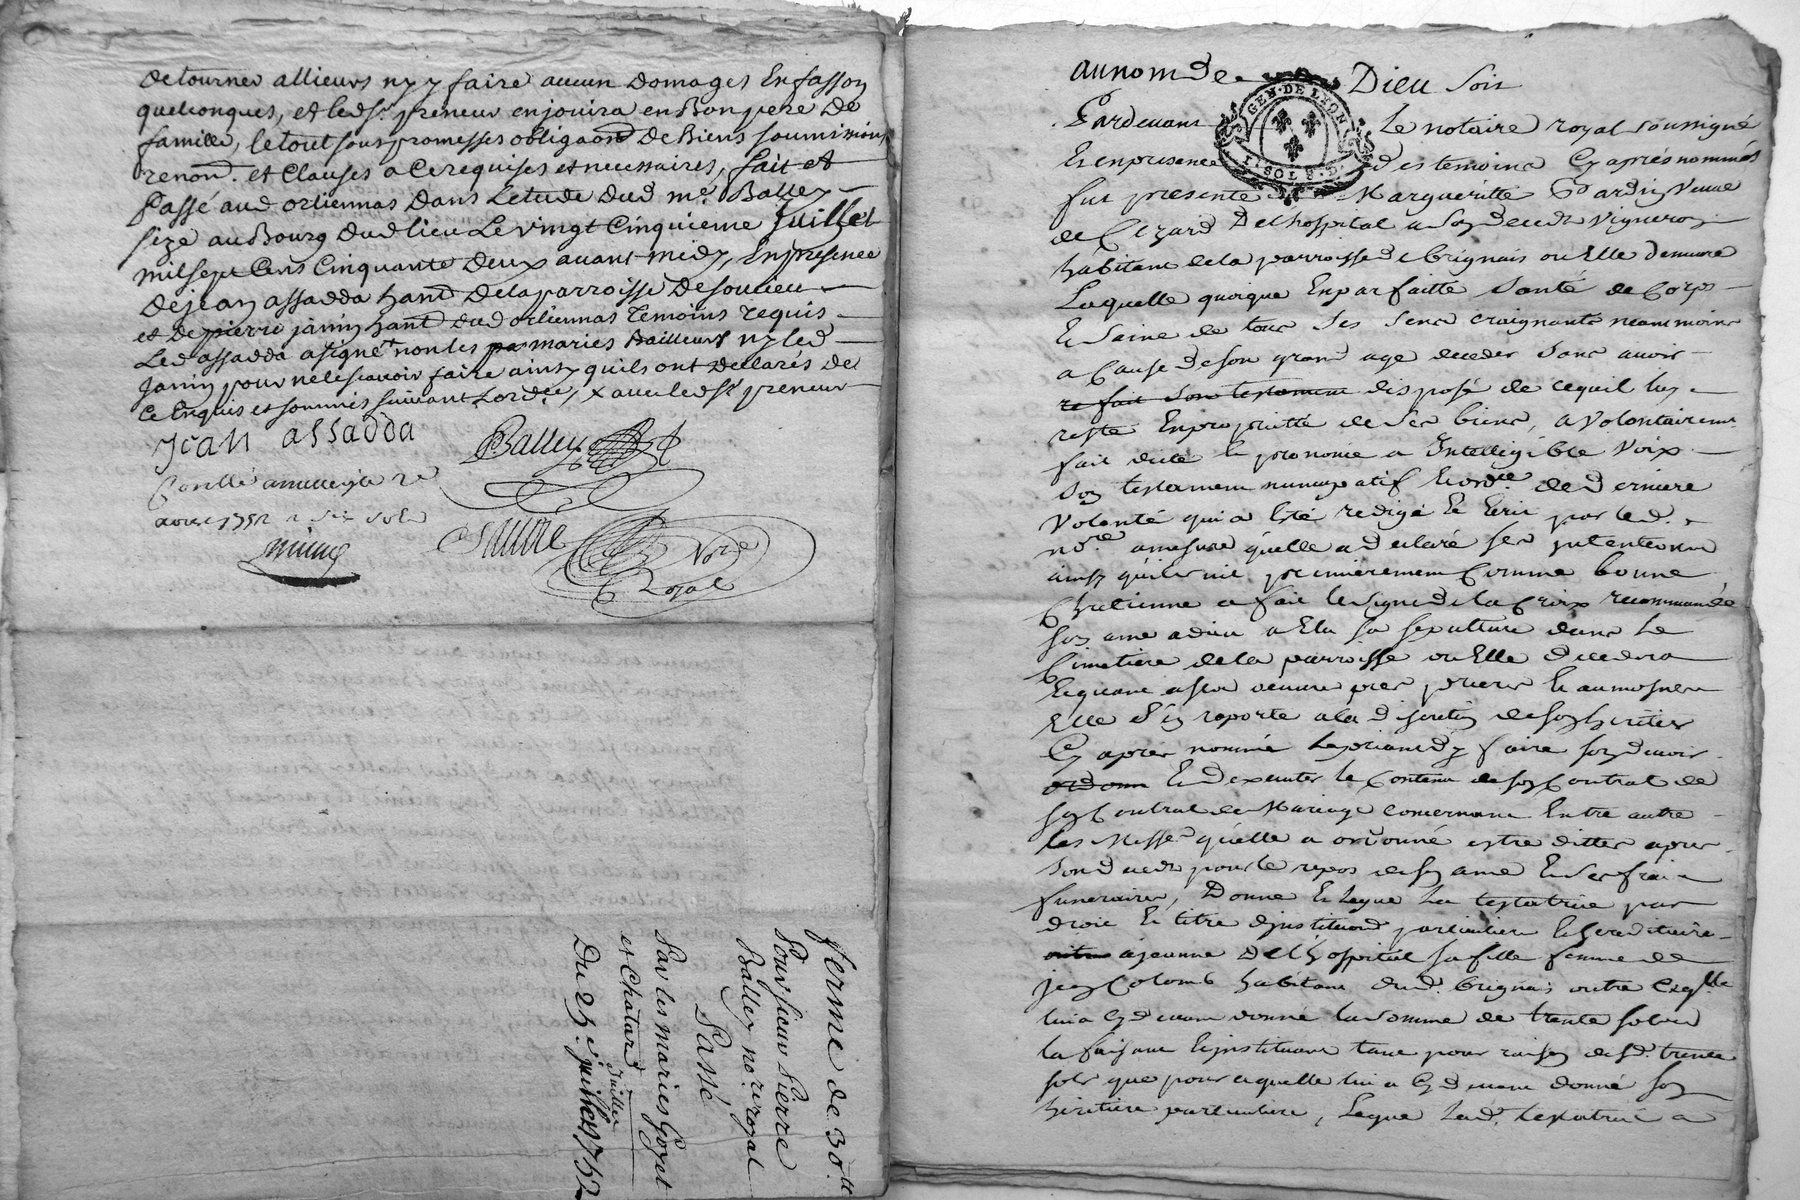 detourner allieurs n'y faire aucun domages En fasson
quelconques, et led sr. preneur en jouira en Bon pere de
famille, le tout sous promesses obligaon de biens soumissions
renon. et Clauses a Ce requises et necessaires, fait et
Passé aud orliennas dans Letude dud me. Balley
size au Bourg dud lieu Le vingt Cinquieme Juillet
mil sept Cens Cinquante deux avant midy, En presence
de jean assadda hant de la parroisse de soucieu
et de pierre janin hant dud orliennas temoins requis
Led assadda a signé non les mariés n'y led
Janin pour ne le scavoir faire ainsy quils ont declarés de
Ce Enquis et sommés suivant Lordce, x avec led sr preneur
Jean assadda Balley
Conllé a
aoust 1752 r six sols
Saulre Nore
Royal
ferme de 30tt
Pour sieur Pierre
Balley no. re royal
Passé
Par les mariés Goyet
et Chatard
juillet
Du 25e. juillet 1752
au nom de Dieu soit
GEN. DE LYON
1. SOL 8. D.
Pardevant Le notaire royal soussigné
Et en presence des temoins Cy aprés nommés
fut presente Margueritte Gardin veuve
de Cezard Delhospital a son deceds vigneron
habitant de la parroisse de brignais ou Elle demeure
Laquelle quoique En parfaitte Santé de Corps
Et saine de tous ses sens craignant neammoins
a Cause de son grand age deceder sans avoir
re fait son testament disposé de ce qui luy
reste En proprietté de ses biens, a volontairemt
fait dicté et prononcé a Intelligible voix
son testament nuncupatif Et ordce de derniere
volonté qui a Esté redigé Et Ecrit par led.
nore a mesure qu'elle a declaré ses intentions
ainsy qu'il suit premierement Comme bonne
Chretienne a fait le signe de la Croix recommandé
son ame a dieu a Elu sa sepulture dans Le
Cimetiere de la parroisse ou Elle decedera
Et quant a ses œuvres pies prieres Et aumosnes
Elle s'en raporte a la discretion de son heritier
Cy apres nommé Le priant d'y faire son devoir
Et d'executer le Contenu de son Contrat de
son Contrat de Mariage concernant Entre autre
les Messes qu'elle a ordonné estre dittes apres
son deceds pour le repos de son ame Et ses frais
funeraires, Donne Et Legue La testatrice par
droit Et titre d'institution particuliere Et hereditaire
a jeanne Delhospital sa fille femme de
jean Colomb habitant dud. brignais outre Ce qu'elle
lui a Cy devant donné la somme de trente sols
la faisant Et instituant tant pour raison desd. trente
sols que pour ce qu'elle lui a Cy devant donné son
heritiere particuliere, Legue lad. testatrice a